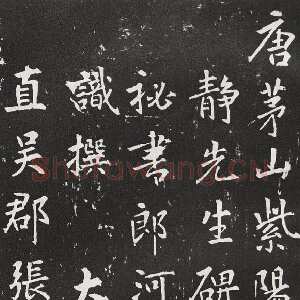 唐茅山紫陽
靜先生碑
祕書郎河
識撰 大
直吳郡張